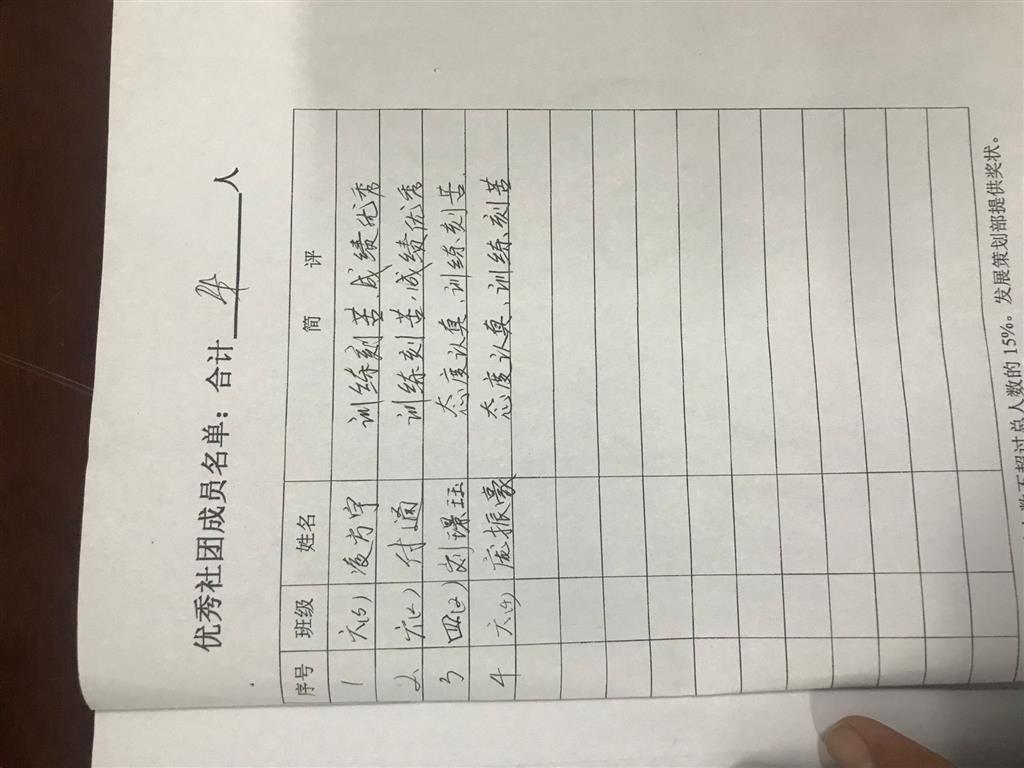 优秀社团成员名单：合计 4 人
序号 班级 姓名 简 评
1 六(5) 凌宇 训练刻苦、成绩优秀
2 六(2) 付通 训练刻苦，成绩优秀
3 四(2) 刘璟珏 态度认真、训练刻苦
4 六(4) 庞振豪 态度认真、训练刻苦
数不超过总人数的15%。发展策划部提供奖状。